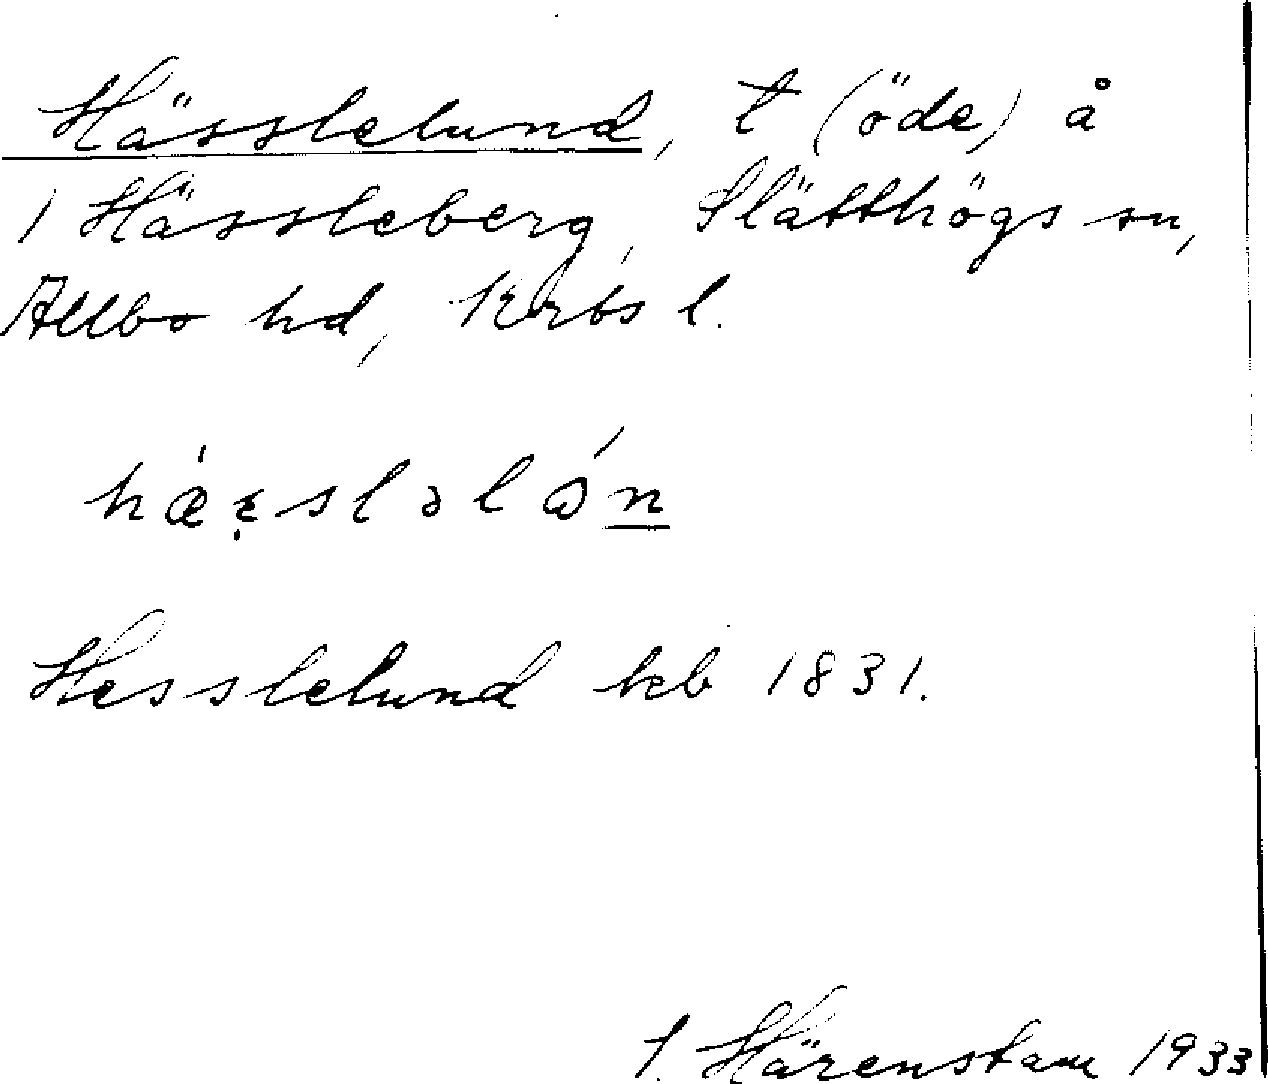 Hässlelund, t (öde) å
1 Hässleberg, Slätthögs sn,
Allbo hd, Krbs l.
hæ̇ꞛ̣sləlɷ́n
Hesslelund kb 1831.
I. Härenstam 1933